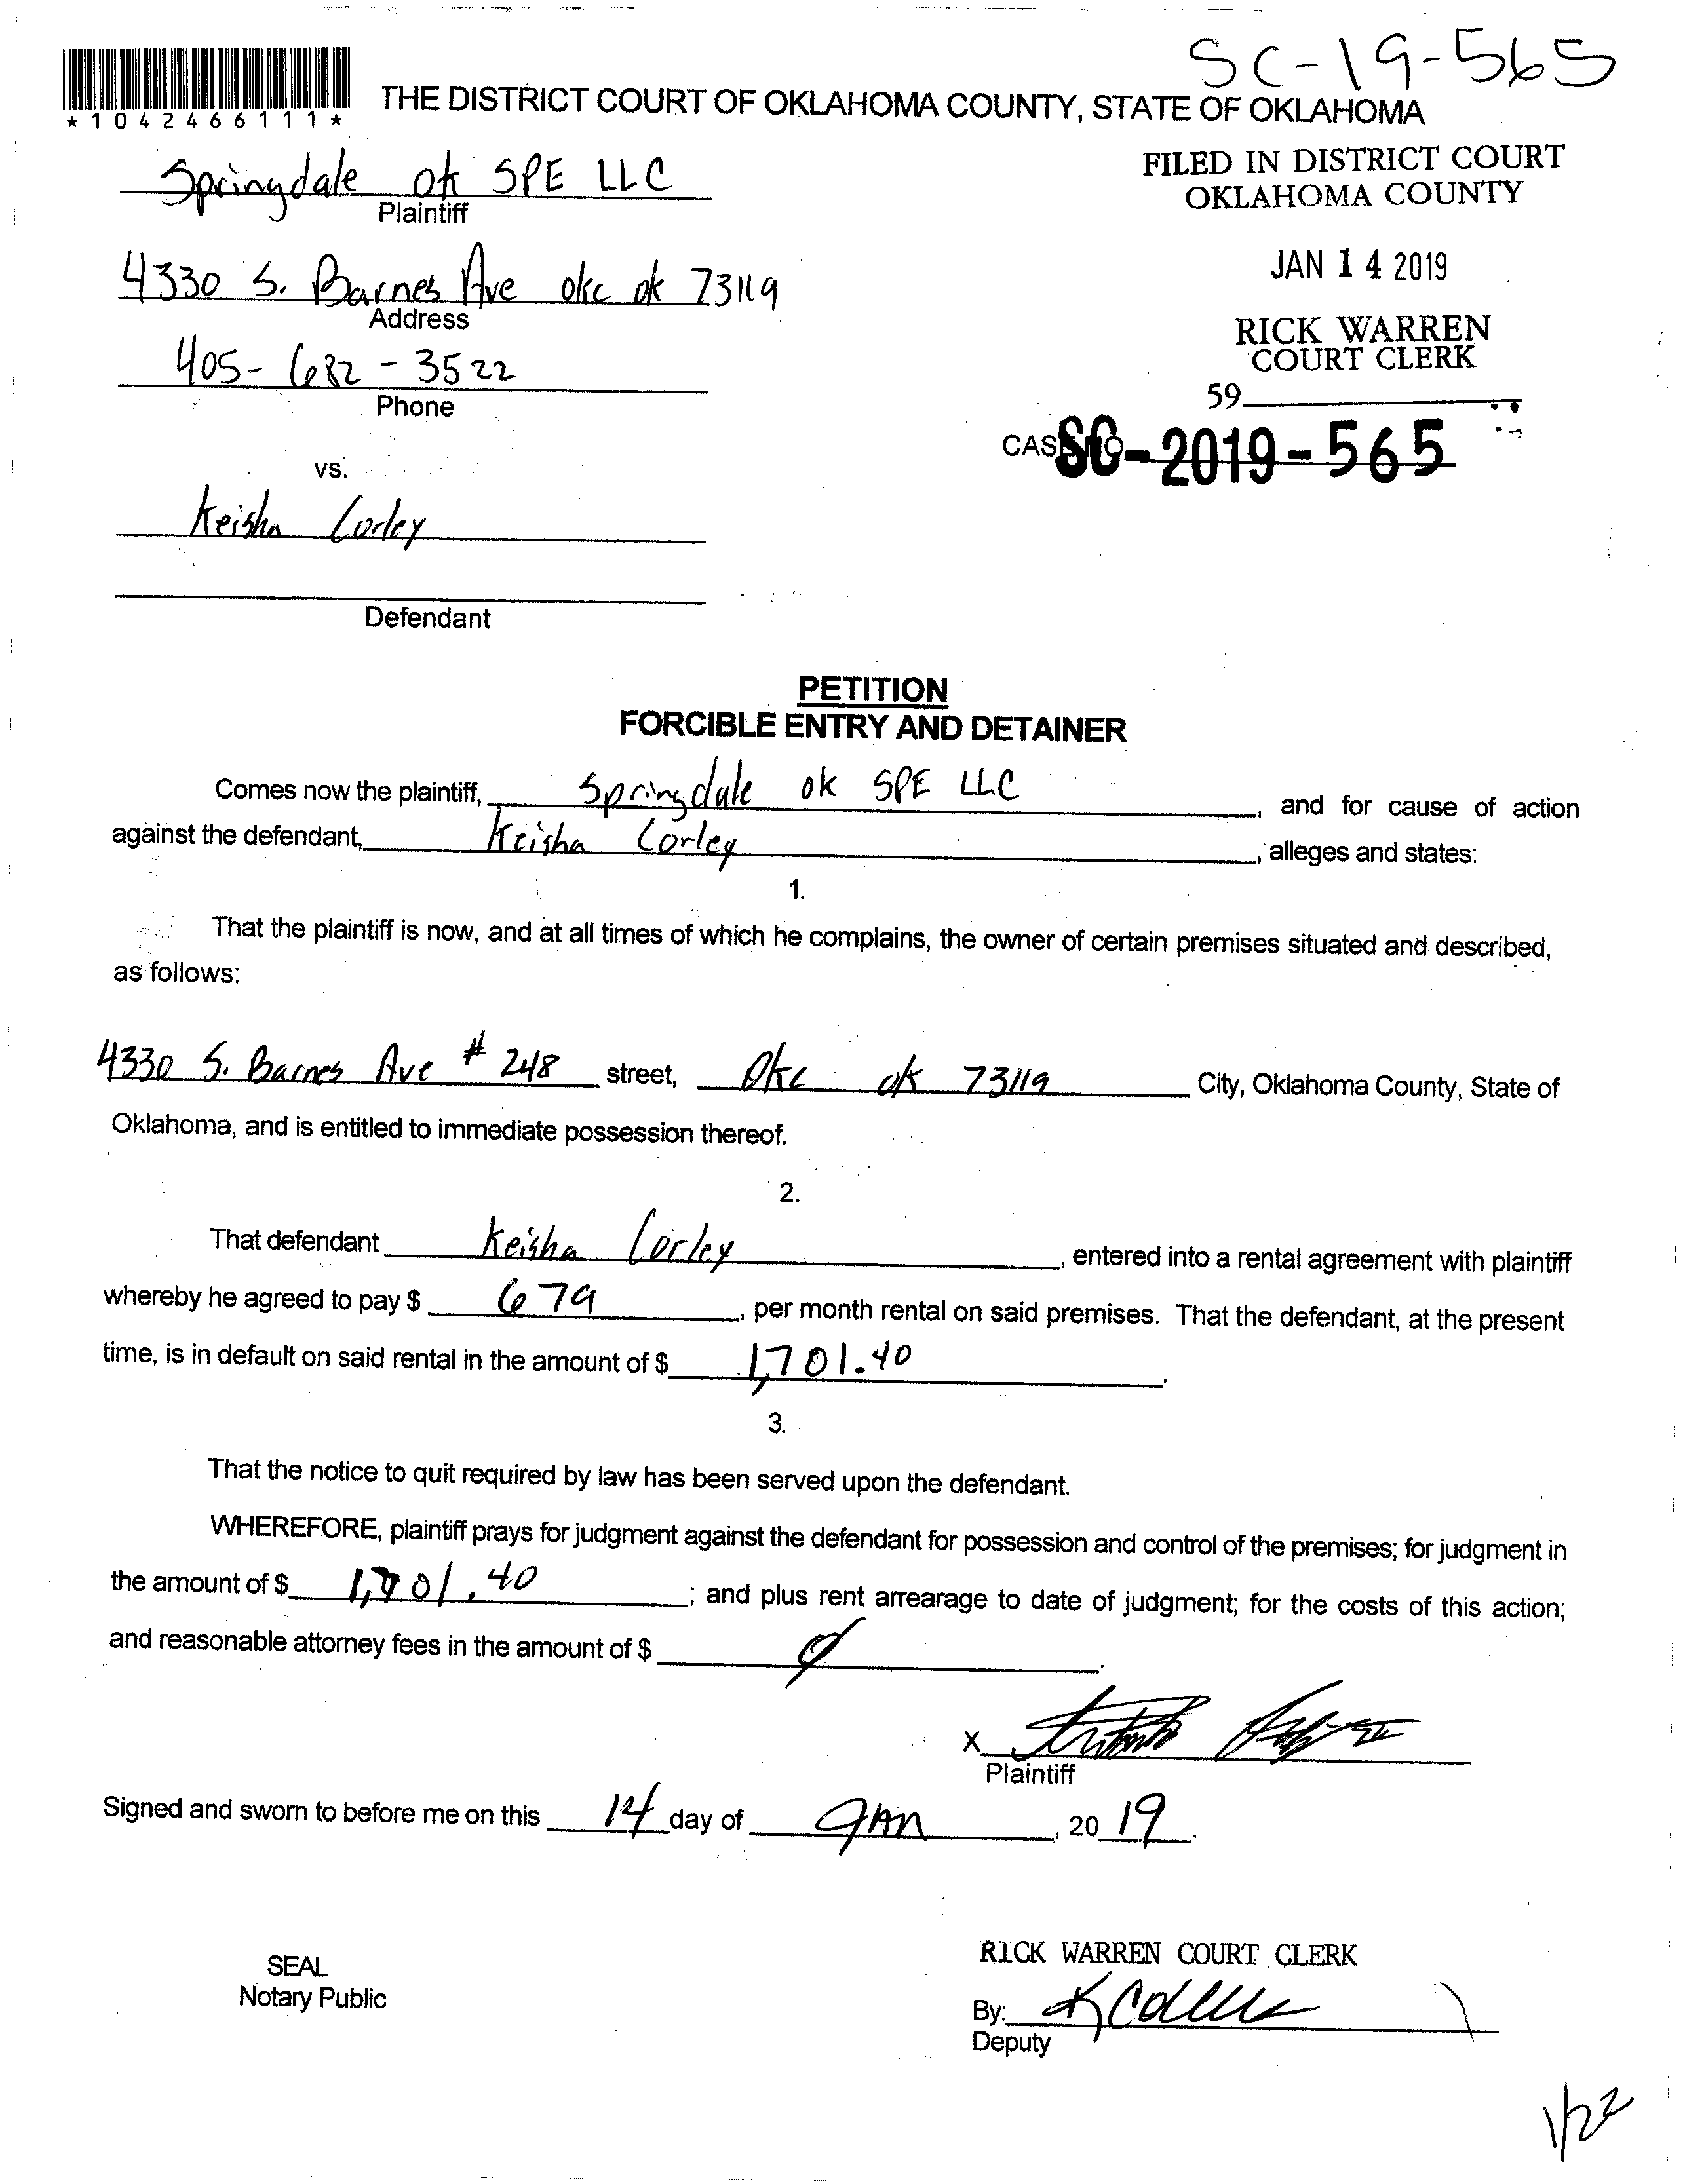 SC-19-565
*1042466111*
THE DISTRICT COURT OF OKLAHOMA COUNTY, STATE OF OKLAHOMA
Springdale ok SPE LLC
Plaintiff
FILED IN DISTRICT COURT
OKLAHOMA COUNTY
4330 S. Barnes Ave okc ok 73119
Address
JAN 14 2019
405-682-3522
Phone
RICK WARREN
COURT CLERK
59
SC-2019-565
vs.
Keisha Corley
Defendant
PETITION
FORCIBLE ENTRY AND DETAINER
Comes now the plaintiff, Springdale ok SPE LLC, and for cause of action
against the defendant, Keisha Corley, alleges and states:
1.
That the plaintiff is now, and at all times of which he complains, the owner of certain premises situated and described,
as follows:
4330 S. Barnes Ave # 248 street, Okc ok 73119 City, Oklahoma County, State of
Oklahoma, and is entitled to immediate possession thereof.
2.
That defendant Keisha Corley, entered into a rental agreement with plaintiff
whereby he agreed to pay $ 679, per month rental on said premises. That the defendant, at the present
time, is in default on said rental in the amount of $ 1,701.40.
3.
That the notice to quit required by law has been served upon the defendant.
WHEREFORE, plaintiff prays for judgment against the defendant for possession and control of the premises; for judgment in
the amount of $ 1,701.40; and plus rent arrearage to date of judgment; for the costs of this action;
and reasonable attorney fees in the amount of $ 0.
X
Plaintiff
Signed and sworn to before me on this 14 day of Jan, 2019.
SEAL
Notary Public
RICK WARREN COURT CLERK
By:
Deputy
1/22